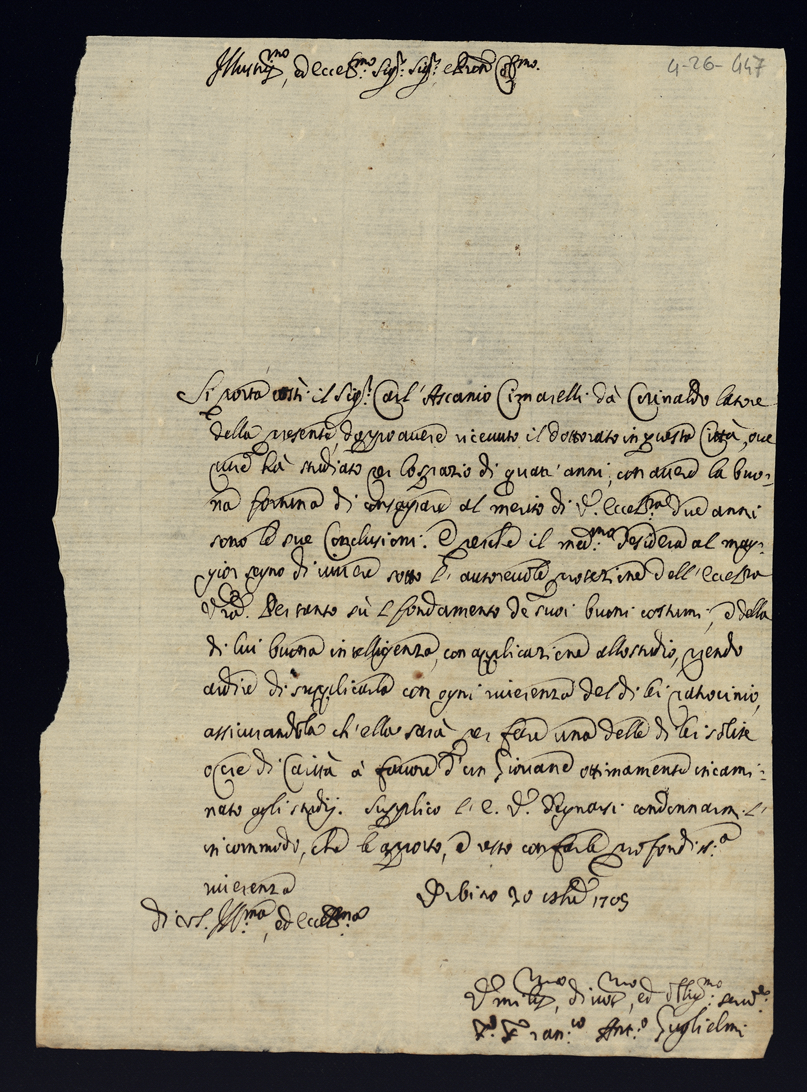 Illustriss.mo, ed Eccell.mo Sig.r Sig.r e Pron Col.mo
4-26-447
Si porta costì il Sig.r Carl'Ascanio Cimarelli dà Corinaldo latore
della presente, doppo avere ricevuto il dottorato in questa Città, ove
pure hà studiato per lo spazio di quatr'anni, con avere la buo-
na fortuna di consagrare al merito di V. Eccell.za due anni
sono le sue Conclusioni. E perche il med.mo desidera al mag-
gior segno di vivere sotto l'autorevole protezione dell'Eccellza
Vra. Per tanto sù 'l fondamento de suoi buoni costumi, e della
di lui buona intelligenza, con applicazione allo studio, prendo
ardire di supplicarla con ogni riverenza del di lei patrocinio,
assicurandola ch'ella sarà per fare una delle di lei solite
opere di Carità à favore d'un Giovane ottimamente incami-
nato agli studij. Supplico l'E. V. degnarsi condonarmi l'
incommodo, che le apporto, e resto con farle profondiss.a
riverenza
Di V.S. Ill.ma, ed Eccell.ma
Urbino 20 1705
Umiliss.mo, divot.mo, ed obblig.mo serv.e
Fran.co Ant.o Guglielmi